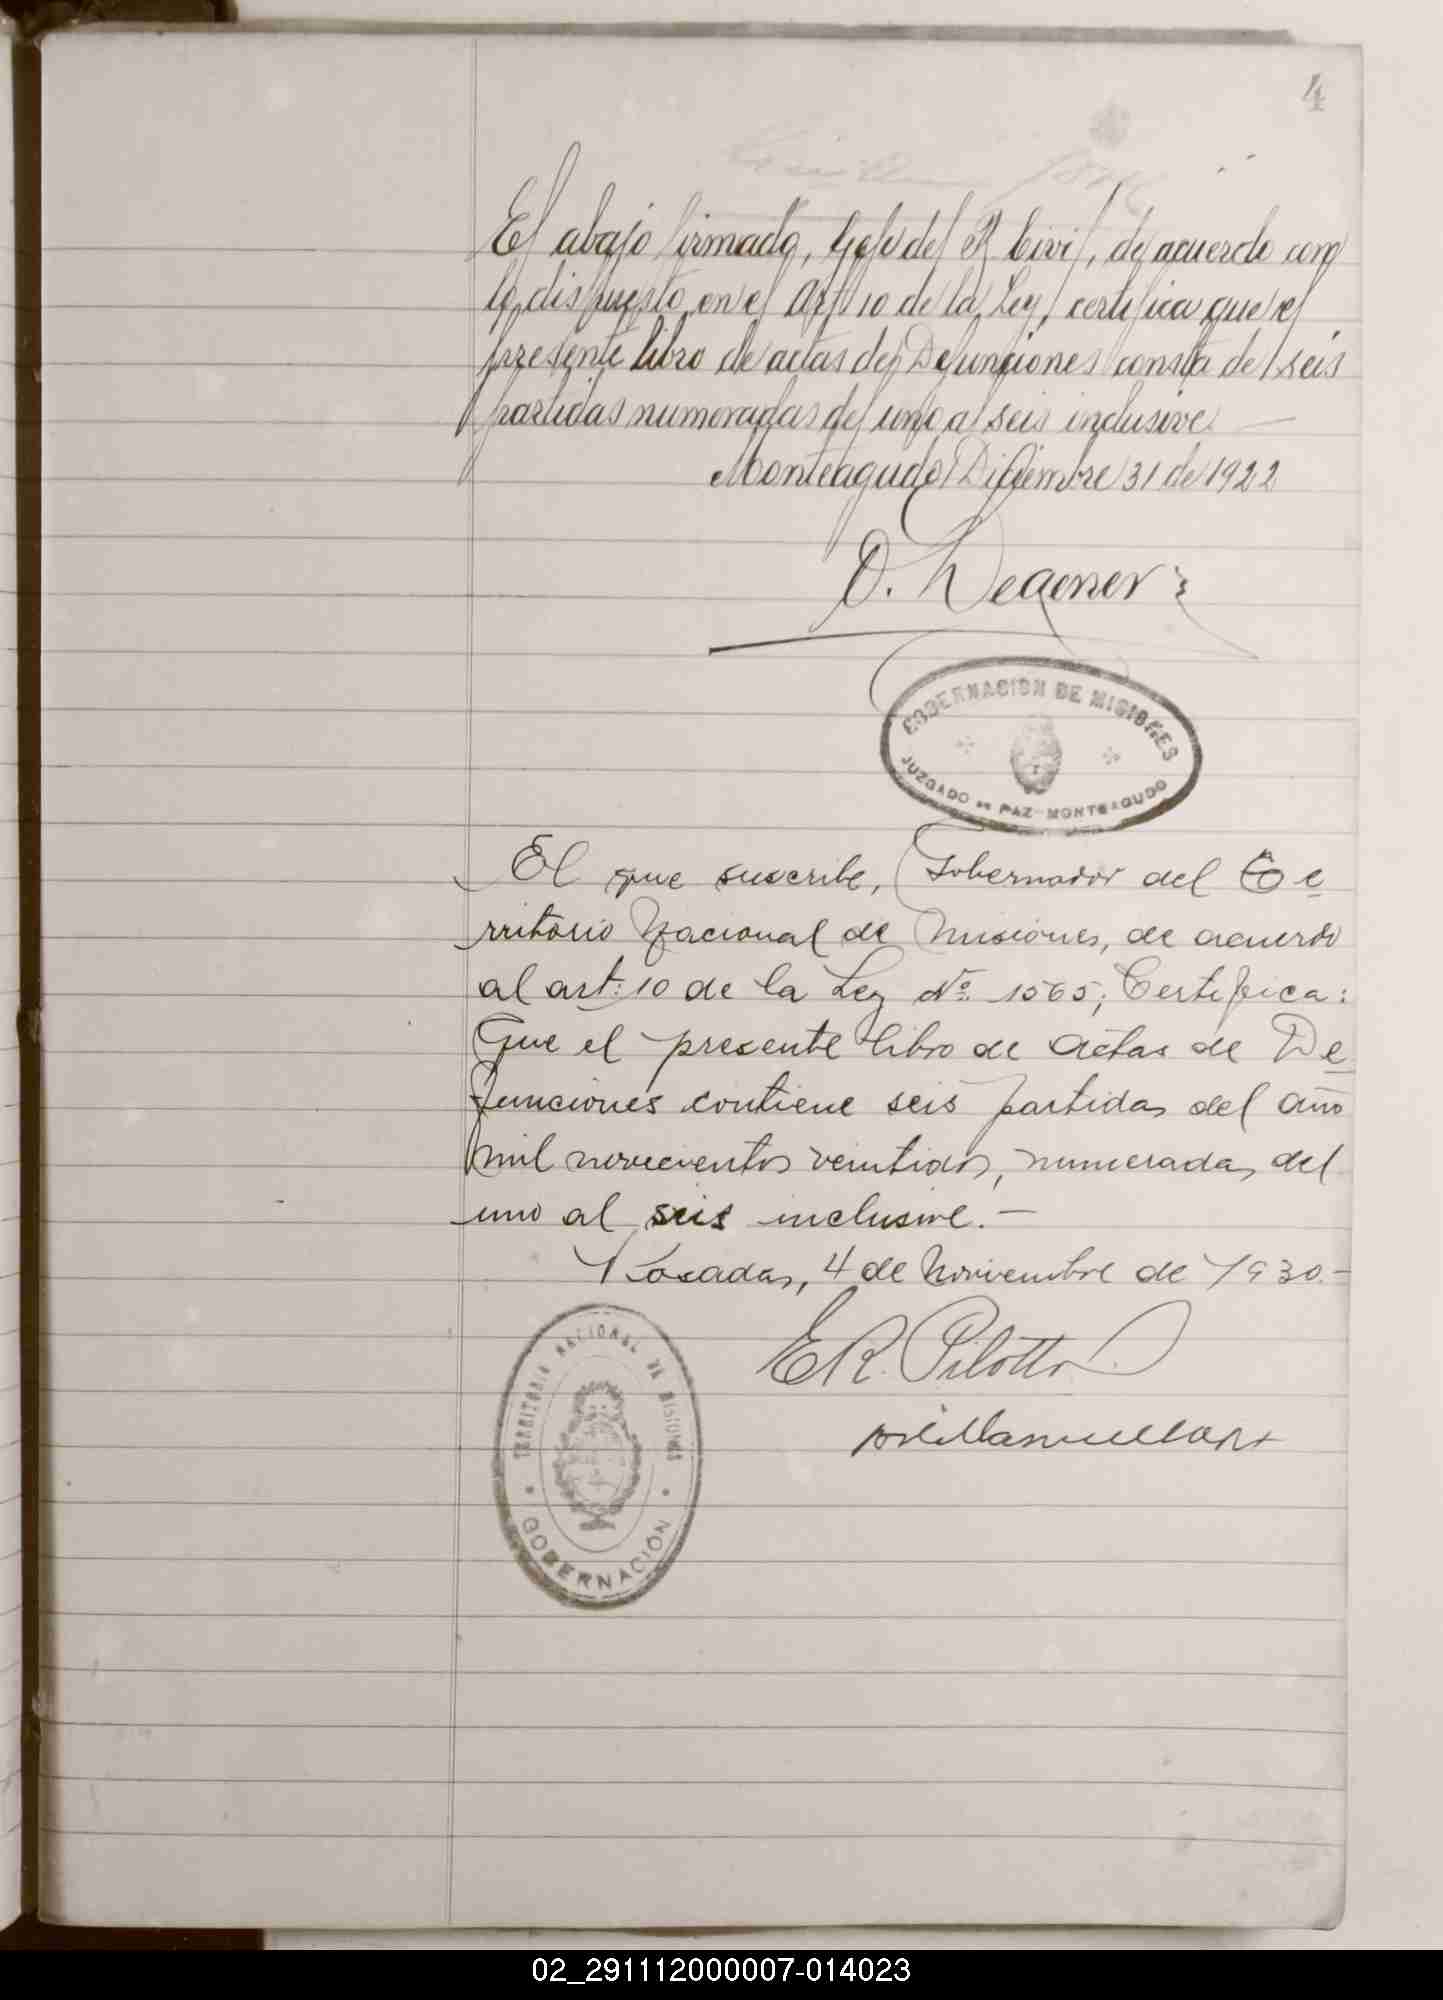 4
El abajo firmado, Gefe del R Civil, de acuerdo con
lo dispuesto en el Art 10 de la Ley, certifica que el
presente libro de actas de Defunciones consta de seis
partidas numeradas del uno al seis inclusive. —
Monteagudo Diciembre 31 de 1922
O. Wegner
GOBERNACION DE MISIONES
JUZGADO DE PAZ MONTEAGUDO
El que suscribe, Gobernador del Te
rritorio Nacional de Misiones, de acuerdo
al art: 10 de la Ley Nº 1565; Certifica:
Que el presente libro de actas de De
funciones contiene seis partidas del año
mil novecientos veintidos, numeradas del
uno al seis inclusive. —
Posadas, 4 de Noviembre de 1930.—
E R. Pilotto
TERRITORIO NACIONAL DE MISIONES
GOBERNACIÓN
02_291112000007-014023